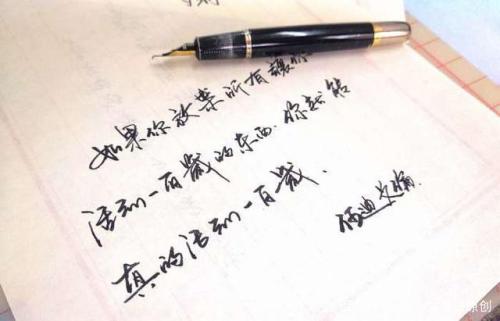 如果你放弃所有让你
活到一百歲的东西,你就能
真的活到一百歲.
伍迪艾倫.
原创